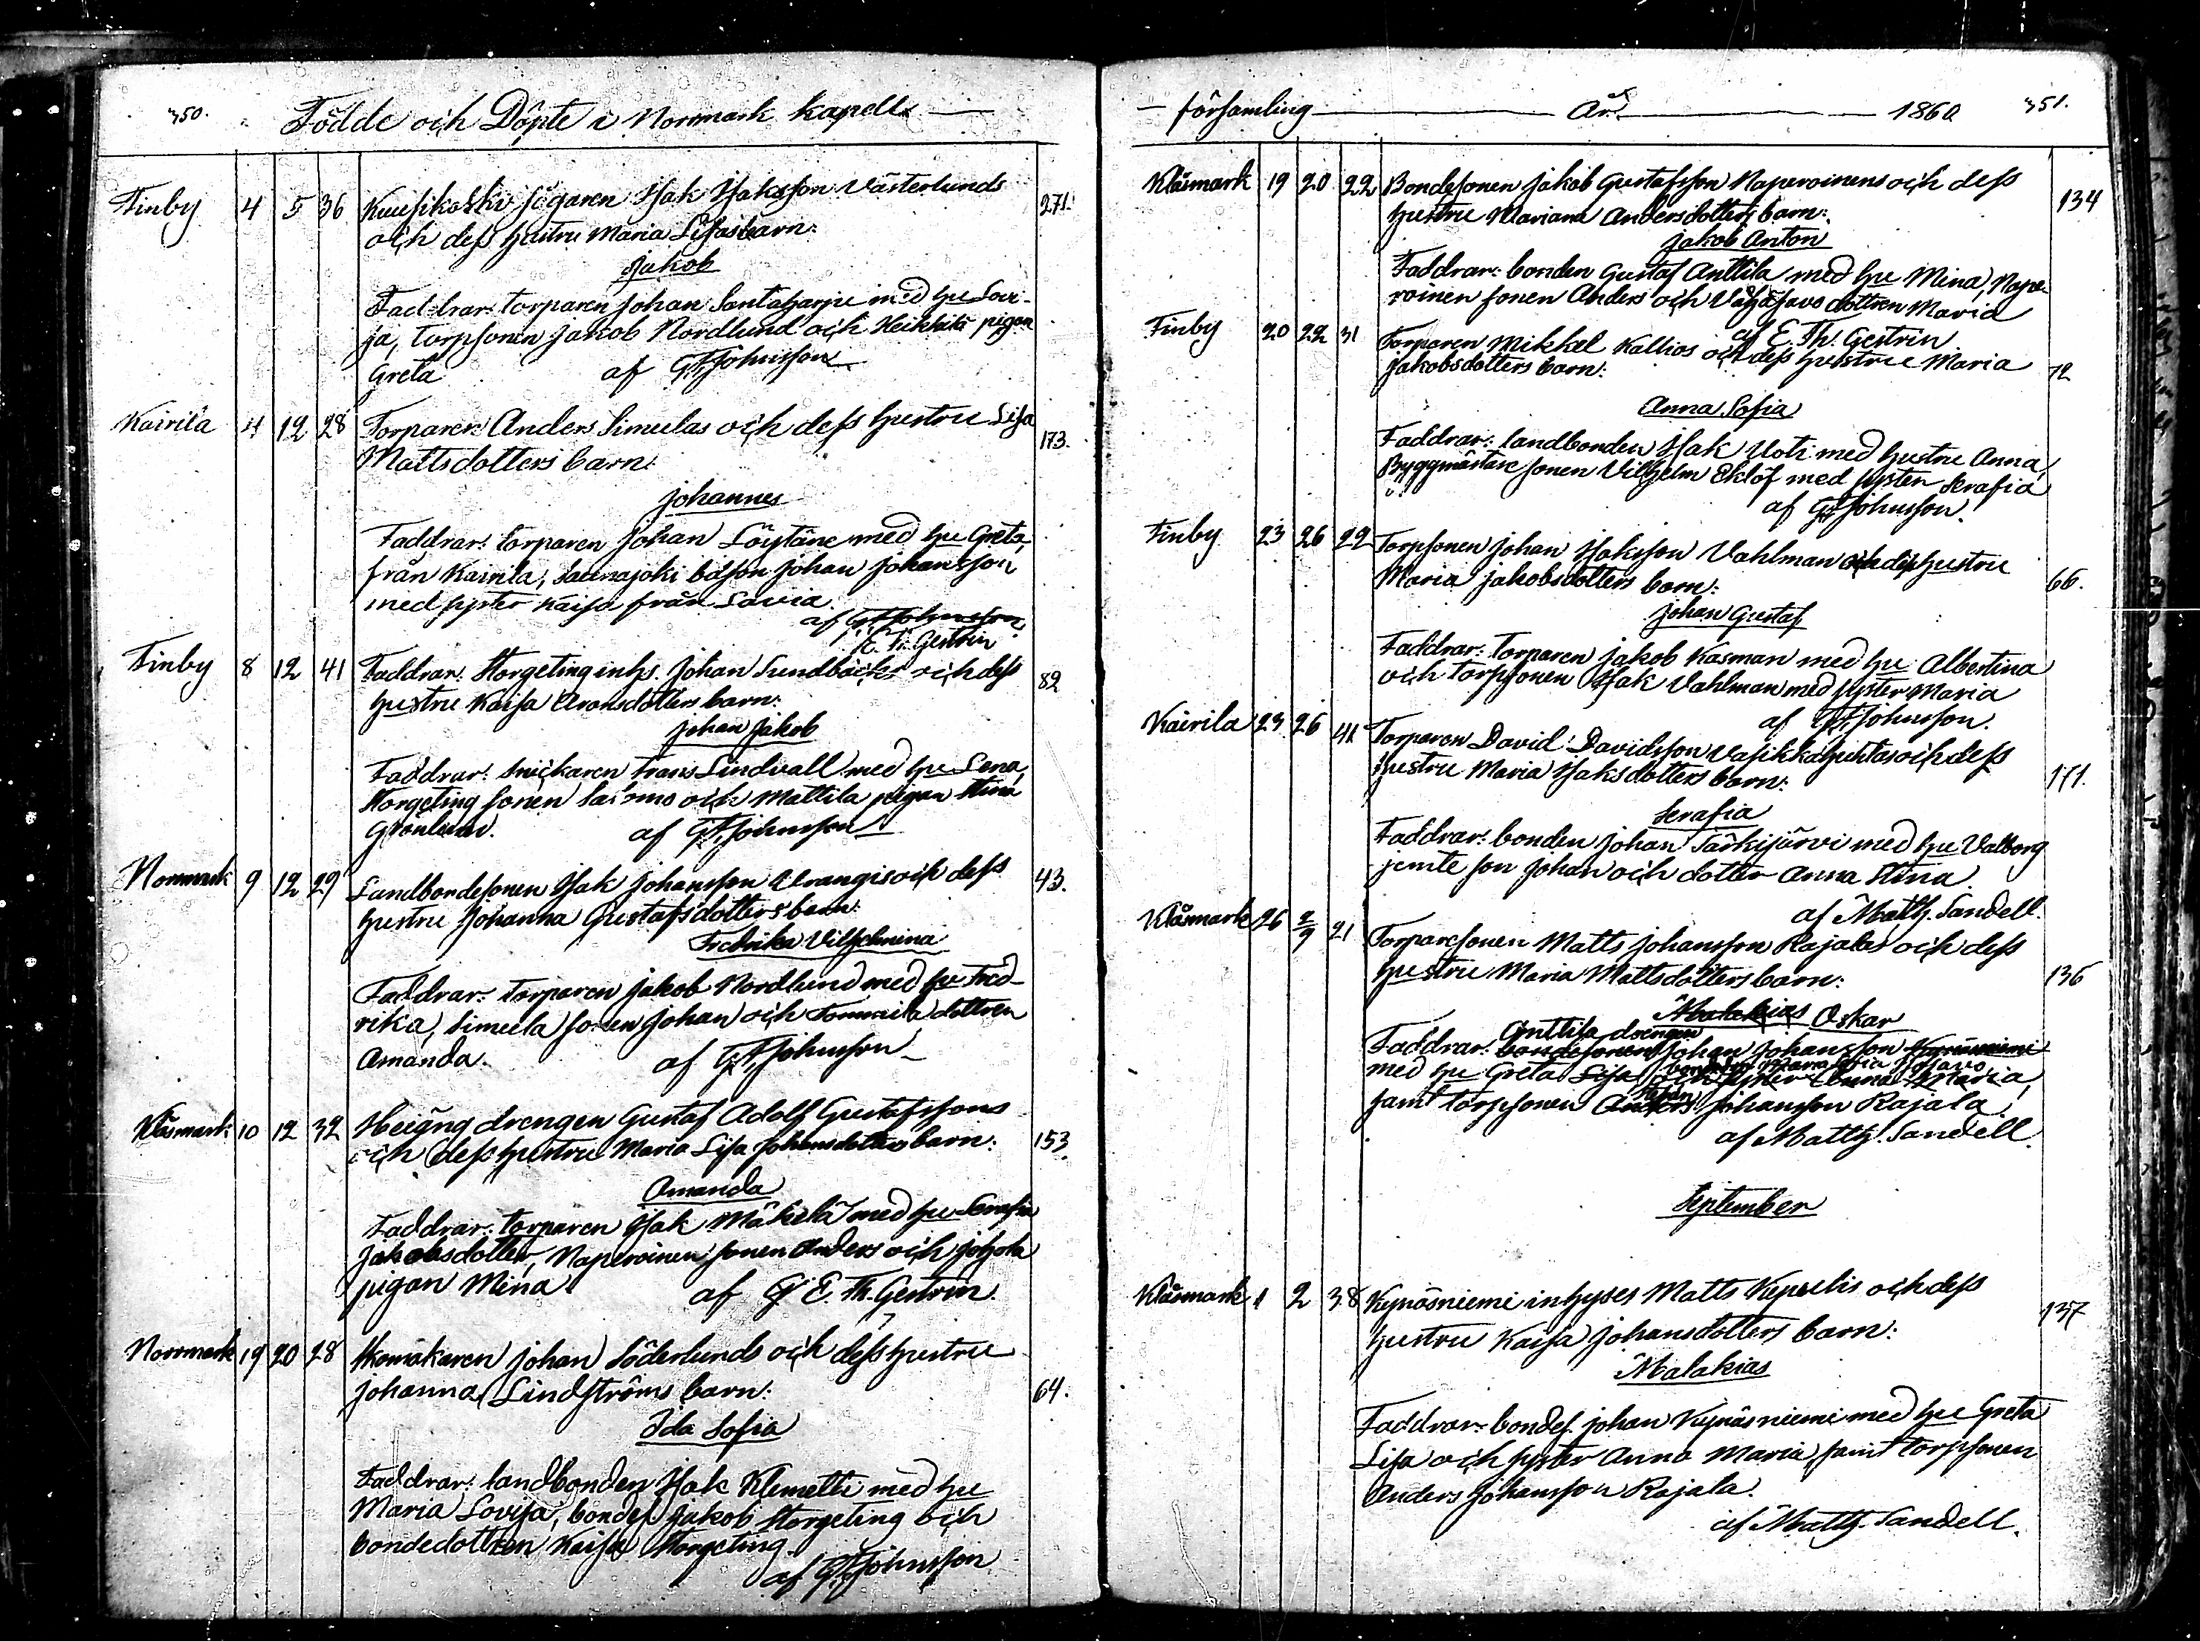 350. Födde och Döpte i Norrmark kapells
Finby 4 5 36 Kuusikoski sågaren Isak Isaksson Västerlunds 271.
och dess hustru Maria Lisas barn:
Jakob
Faddrar: torparen Johan Santaharju med hu Lovi-
sa, torpsonen Jakob Nordlund och Heikkilä pigan
Greta af G A Johnsson
Kairila 4 12 28 Torparen Anders Simulas och dess hustru Lisa 173.
Mattsdotters barn:
Johannes
Faddrar: torparen Johan Löytäne med hu Greta,
från Kairila, Saunajoki bdeson Johan Johansson
med syster Kaisa från Lavia.
af G A Johnsson
E. Th. Gestrin
Finby 8 12 41 Faddrar. Storgeting inhs. Johan Sundbäcks och dess 82
hustru Kaisa Aronsdotters barn:
Johan Jakob
Faddrar: snickaren Frans Lindvall med hu Lena,
Storgeting sonen Salomo och Mattila pigan Stina
Grönlund. af G A Johnsson
Norrmark 9 12 29 Landbondesonen Isak Johansson Vrangis och dess 43.
hustru Johanna Gustafsdotters barn:
Fredrika Vilhelmina
Faddrar: torparen Jakob Nordlund med hu Fred-
rika, Simula sonen Johan och Tommila dottren
Amanda. af G A Johnsson
Klåsmark 10 12 32 Heigng drengen Gustaf Adolf Gustafssons
och dess hustru Maria Lisa Johansdotters barn: 153.
Amanda
Faddrar: torparen Isak Mäkelä med hu Serafia
Jakobsdotter, Naperoinen sonen Anders och Johola
pigan Mina af E. Th. Gestrin.
Norrmark 19 20 28 Skomakaren Johan Söderlunds och dess hustru
Johanna Lindströms barn: 64.
Ida Sofia
Faddrar: landbonden Isak Klemetti med hu
Maria Lovisa, bondes. Jakob Storgeting och
bondedottren Kaisa Storgeting.
af G A Johnsson
församling År 1860 351.
Klåsmark 19 20 22 Bondesonen Jakob Gustafsson Naperoinens och dess 134
hustru Mariana Andersdotters barn:
Jakob Anton
Faddrar: bonden Gustaf Anttila med hu Mina, Nape-
roinen sonen Anders och Vähäsavo dottren Maria
af E. Th. Gestrin
Finby 20 22 31 Torparen Mikkel Kallios och dess hustru Maria 72
Jakobsdotters barn:
Anna Sofia
Faddrar: landbonden Isak Uoti med hustru Anna,
Byggmästare sonen Vilhelm Eklöf med syster Serafia
af G A Johnsson.
Finby 23 26 22 Torpsonen Johan Isaksson Vahlman och dess hustru
Maria Jakobsdotters barn: 66.
Johan Gustaf
Faddrar: torparen Jakob Kasman med hu Albertina
och torpsonen Isak Vahlman med syster Maria
af G A Johnsson.
Kairila 23 26 41 Torparen David Davidsson Vasikkahuhtas och dess
hustru Maria Isaksdotters barn: 171.
Serafia
Faddrar: bonden Johan Särkijärvi med hu Valborg
jemte son Johan och dotter Anna Stina
af Matth. Sandell.
Klåsmark 26 2/9 21 Torparesonen Matts Johansson Rajalas och dess
hustru Maria Mattsdotters barn: 136
Malakias Oskar
Anttila drengen
Faddrar: bondesonen Johan Johansson Kynäsniemi
med hu Greta Lisa och syster Anna Maria,
samt torpsonen Anders Johansson Rajala.
af Matth. Sandell.
September
Klåsmark 1 2 38 Kynäsniemi inhyses Matts Kepulis och dess 137
hustru Kaisa Johansdotters barn:
Malakias
Faddrar: bondes. Johan Kynäsniemi med hu Greta
Lisa och syster Anna Maria samt torpsonen
Anders Johansson Rajala.
af Matth. Sandell.